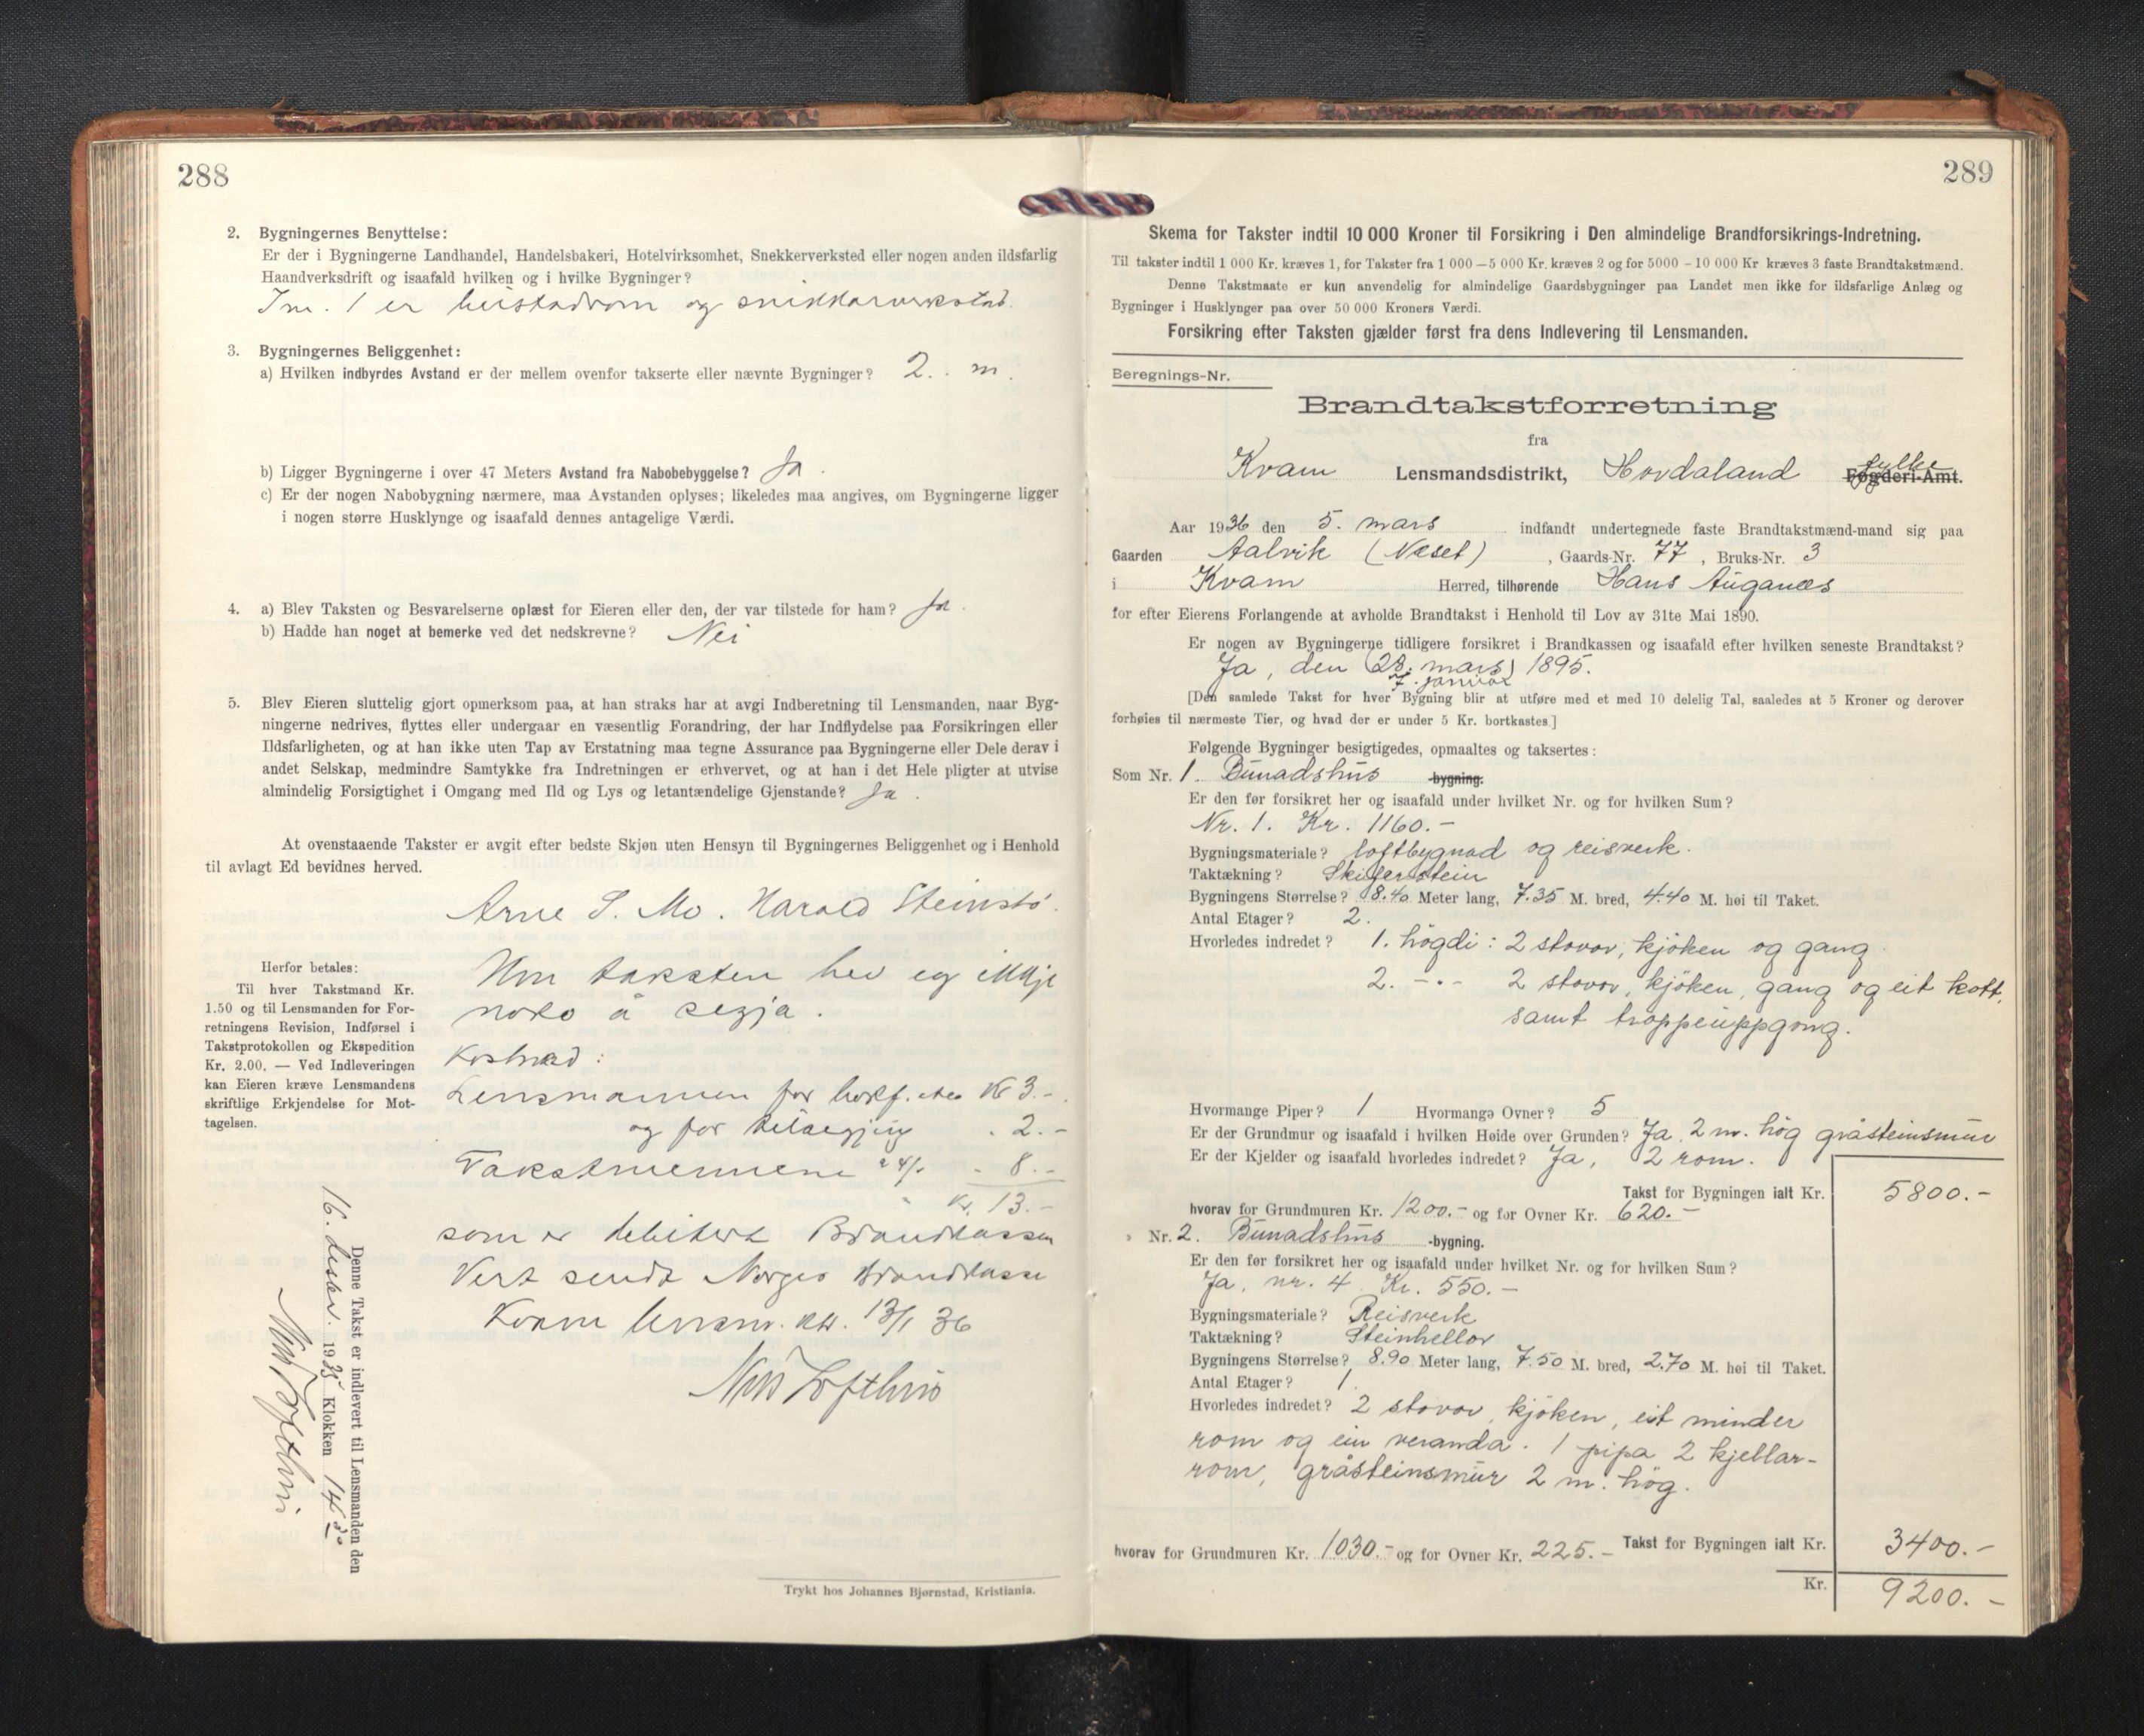 288
2. Bygningernes Benyttelse:
Er der i Bygningerne Landhandel, Handelsbakeri, Hotelvirksomhet, Snekkerverksted eller nogen anden ildsfarlig
Haandverksdrift og isaafald hvilken og i hvilke Bygninger?
I nr. 1 er bustadrom og snikkarverkstad.
3. Bygningernes Beliggenhet:
a) Hvilken indbyrdes Avstand er der mellem ovenfor takserte eller nævnte Bygninger? 2. m.
b) Ligger Bygningerne i over 47 Meters Avstand fra Nabobebyggelse? Ja.
c) Er der nogen Nabobygning nærmere, maa Avstanden oplyses; likeledes maa angives, om Bygningerne ligger
i nogen større Husklynge og isaafald dennes antagelige Værdi.
4. a) Blev Taksten og Besvarelserne oplæst for Eieren eller den, der var tilstede for ham? Ja.
b) Hadde han noget at bemerke ved det nedskrevne? Nei
5. Blev Eieren sluttelig gjort opmerksom paa, at han straks har at avgi Indberetning til Lensmanden, naar Byg-
ningerne nedrives, flyttes eller undergaar en væsentlig Forandring, der har Indflydelse paa Forsikringen eller
Ildsfarligheten, og at han ikke uten Tap av Erstatning maa tegne Assurance paa Bygningerne eller Dele derav i
andet Selskap, medmindre Samtykke fra Indretningen er erhvervet, og at han i det Hele pligter at utvise
almindelig Forsigtighet i Omgang med Ild og Lys og letantændelige Gjenstande? Ja.
At ovenstaaende Takster er avgit efter bedste Skjøn uten Hensyn til Bygningernes Beliggenhet og i Henhold
til avlagt Ed bevidnes herved.
Arne S. Mo. Harald Steinstö.
Um taksten hev eg ikkje
noko å segja.
Kostnad:
Lensmannen for Kr 3.-
og for tilsegjing - 2.-
Takstmennene à 4/- - 8.-
Kr. 13.-
som er debitert Brandkassen
Vert sendt Norges Brandkasse
Kvam lensm. ktr. 13/1 36
Nils Lofthus
Herfor betales:
Til hver Takstmand Kr.
1.50 og til Lensmanden for For-
retningens Revision, Indførsel i
Takstprotokollen og Ekspedition
Kr. 2.00. — Ved Indleveringen
kan Eieren kræve Lensmandens
skriftlige Erkjendelse for Mot-
tagelsen.
Denne Takst er indlevert til Lensmanden den
16. desbr. 1935 Klokken 14 30
Nils Lofthus
Trykt hos Johannes Bjørnstad, Kristiania.
289
Skema for Takster indtil 10 000 Kroner til Forsikring i Den almindelige Brandforsikrings-Indretning.
Til takster indtil 1 000 Kr. kræves 1, for Takster fra 1 000 – 5 000 Kr. kræves 2 og for 5000 – 10 000 Kr kræves 3 faste Brandtakstmænd.
Denne Takstmaate er kun anvendelig for almindelige Gaardsbygninger paa Landet men ikke for ildsfarlige Anlæg og
Bygninger i Husklynger paa over 50 000 Kroners Værdi.
Forsikring efter Taksten gjælder først fra dens Indlevering til Lensmanden.
Beregnings-Nr.
Brandtakstforretning
fra
Kvam Lensmandsdistrikt, Hordaland fylke Fogderi-Amt.
Aar 1936 den 5. mars indfandt undertegnede faste Brandtakstmænd-mand sig paa
Gaarden Aalvik (Neset), Gaards-Nr. 77, Bruks-Nr. 3
i Kvam Herred, tilhørende Hans Auganæs
for efter Eierens Forlangende at avholde Brandtakst i Henhold til Lov av 31te Mai 1890.
Er nogen av Bygningerne tidligere forsikret i Brandkassen og isaafald efter hvilken seneste Brandtakst?
Ja, den (28. mars) 1895.
7. januar
[Den samlede Takst for hver Bygning blir at utføre med et med 10 delelig Tal, saaledes at 5 Kroner og derover
forhøies til nærmeste Tier, og hvad der er under 5 Kr. bortkastes.]
Følgende Bygninger besigtigedes, opmaaltes og taksertes:
Som Nr. 1. Bunadshus -bygning.
Er den før forsikret her og isaafald under hvilket Nr. og for hvilken Sum?
Nr. 1. Kr. 1160.-
Bygningsmateriale? loftbygnad og reisverk.
Taktækning? Skiferstein
Bygningens Størrelse? 8.40 Meter lang, 7.35 M. bred, 4.40 M. høi til Taket.
Antal Etager? 2.
Hvorledes indredet? 1. högdi: 2 stovor, kjöken og gang.
2. -"- 2 stovor, kjöken, gang og eit kott,
samt troppeuppgong.
Hvormange Piper? 1 Hvormange Ovner? 5
Er der Grundmur og isaafald i hvilken Høide over Grunden? Ja, 2 m. hög gråsteinsmur
Er der Kjelder og isaafald hvorledes indredet? Ja, 2 rom.
Takst for Bygningen ialt Kr. 5800.-
hvorav for Grundmuren Kr. 1200.- og for Ovner Kr. 620.-
Nr. 2. Bunadshus -bygning.
Er den før forsikret her og isaafald under hvilket Nr. og for hvilken Sum?
Ja, nr. 4 Kr. 550.-
Bygningsmateriale? Reisverk
Taktækning? Steinhellor
Bygningens Størrelse? 8.90 Meter lang, 7.50 M. bred, 2.70 M. høi til Taket.
Antal Etager? 1.
Hvorledes indredet? 2 stovor, kjöken, eit minder
rom og ein veranda. 1 pipa 2 kjellar-
rom, gråsteinsmur 2 m. hög.
hvorav for Grundmuren Kr. 1030.- og for Ovner Kr. 225.- Takst for Bygningen ialt Kr. 3400.-
Kr. 9200.-